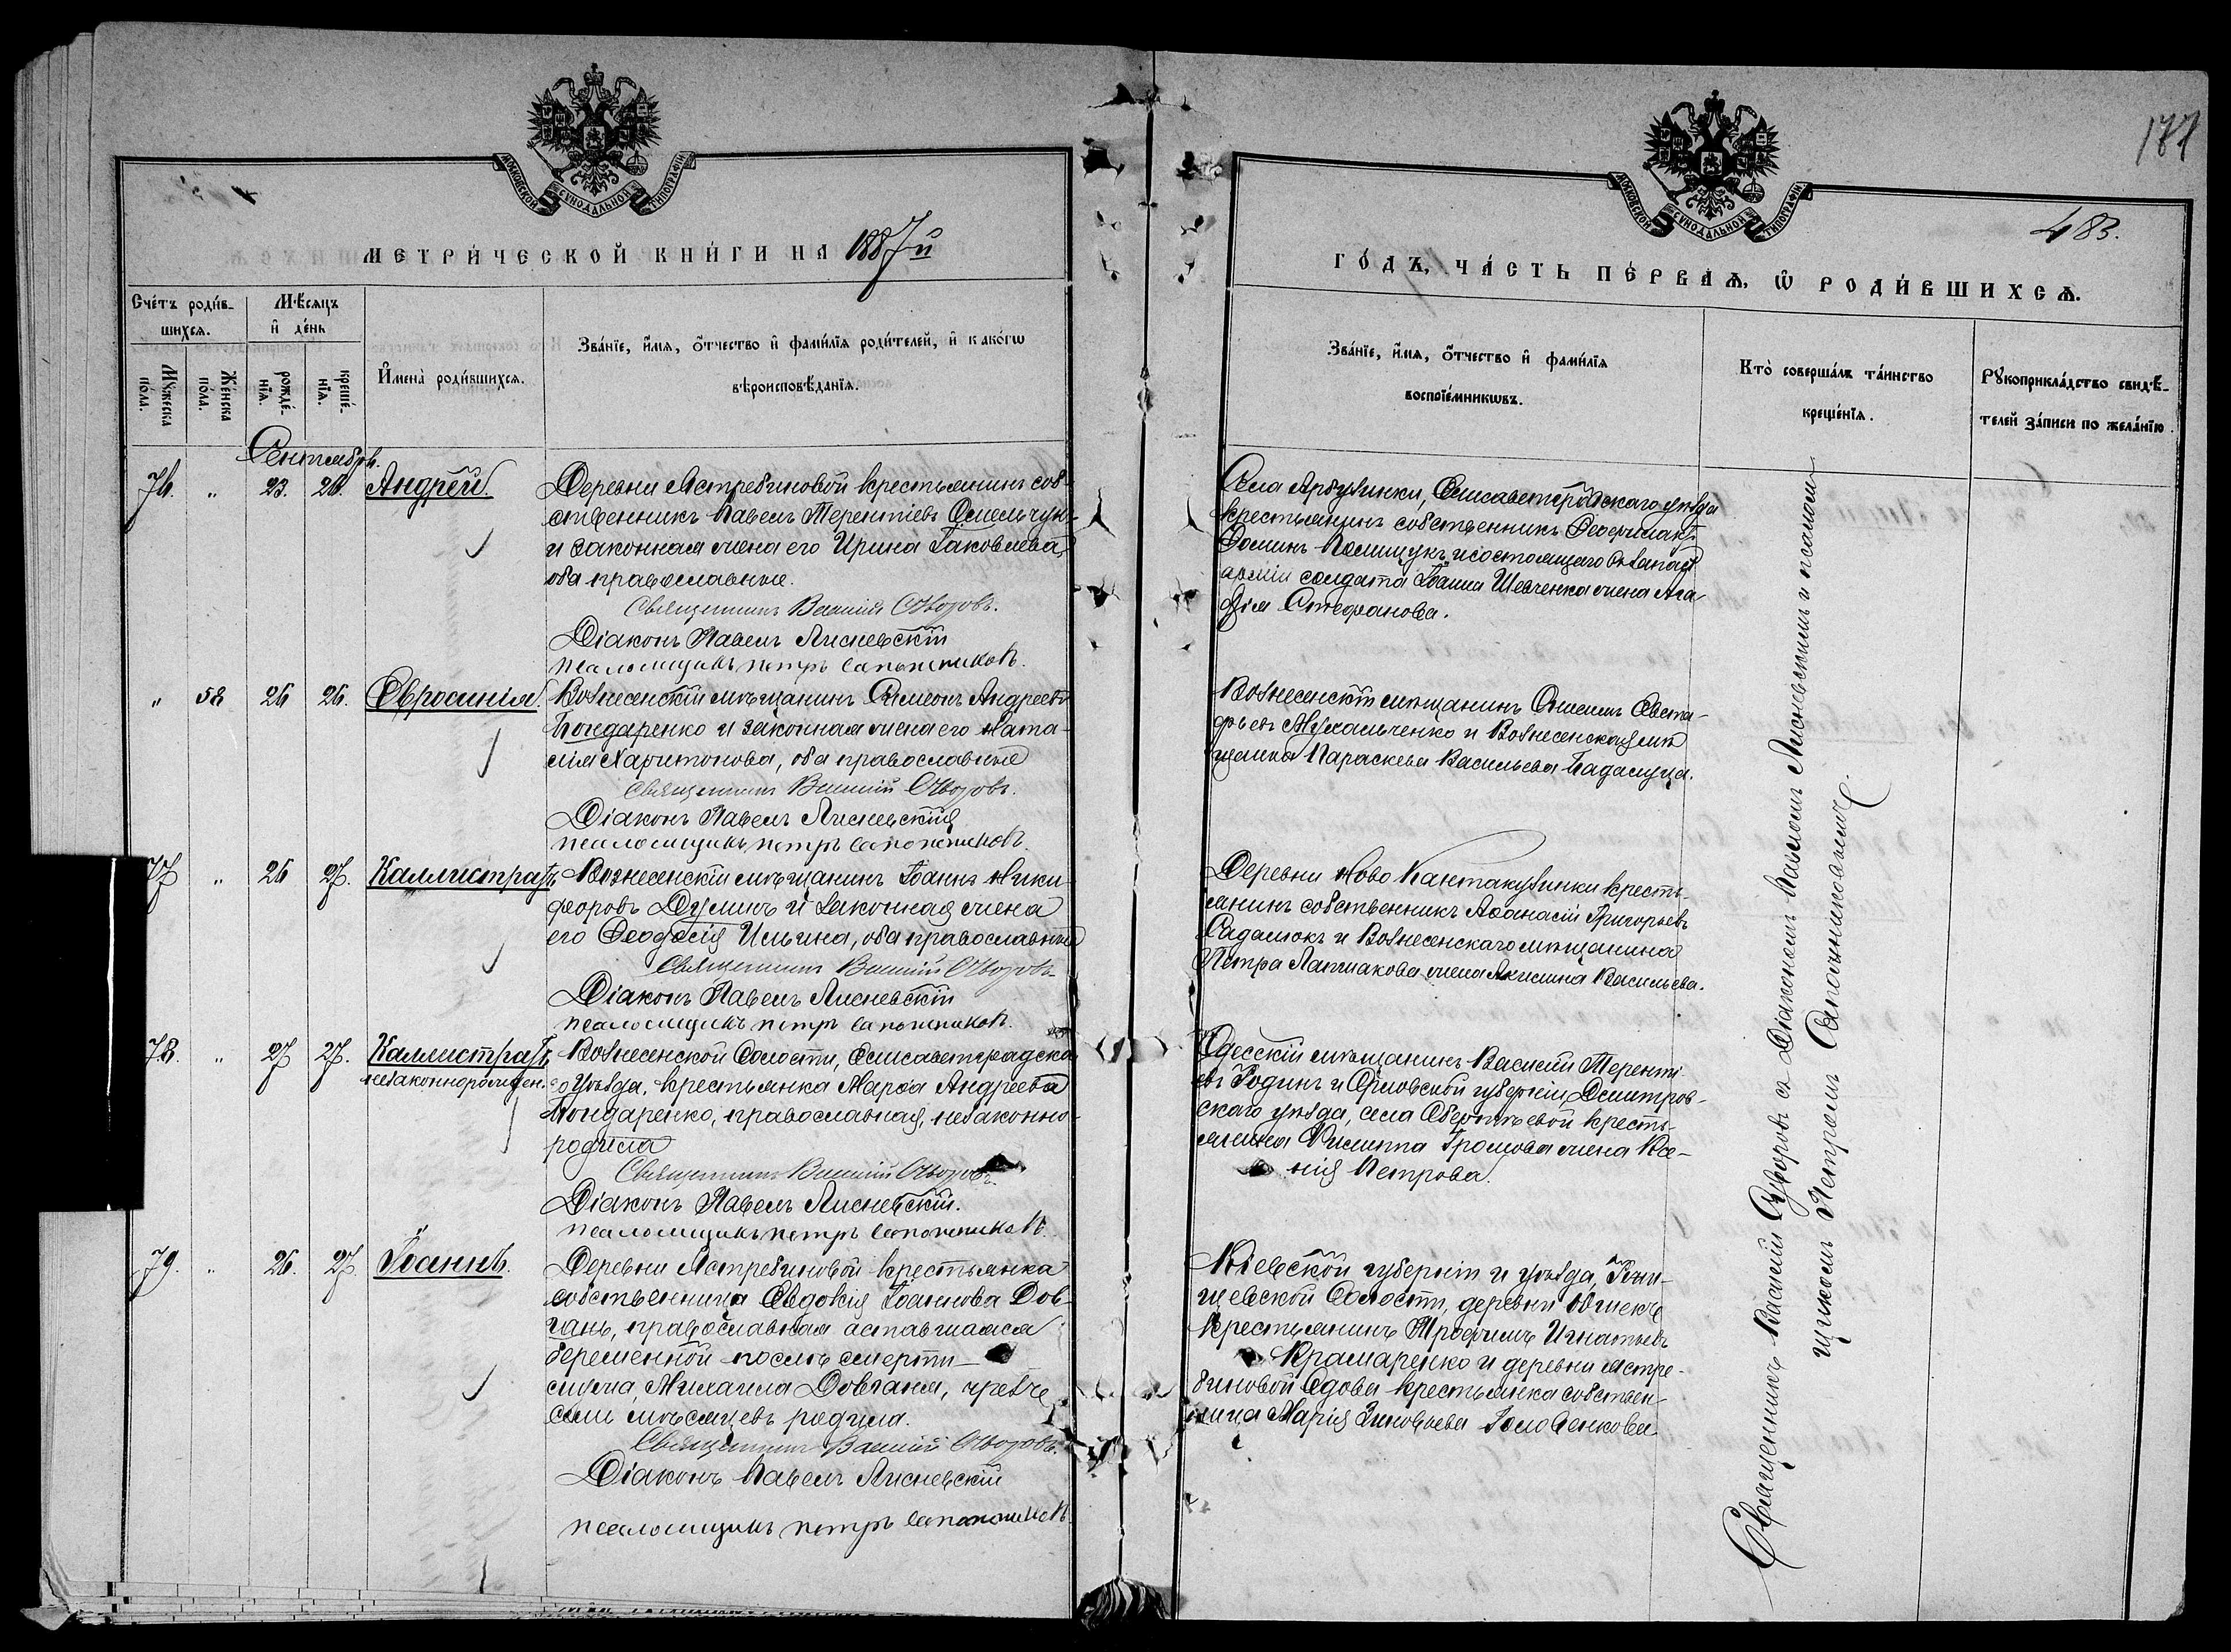 МОСКОВСКОЙ СѴНОДАЛЬНОЙ ТИПОГРАФІИ
МЕТРИ́ЧЕСКОЙ КНИ́ГИ НА 1887й
Сче́тъ роди́в-
шихсѧ.
Мѣ́сѧцъ
и҆ де́нь
Мꙋ́жеска
по́ла.
Же́нска
по́ла.
рожде́-
нїѧ.
креще́-
нїѧ.
И҆мена̀ роди́вшихсѧ.
Зва́нїе, и҆́мѧ, ѻ҆́тчество и҆ фами́лїѧ роди́телей, и҆ како́гѡ
вѣроисповѣ́данїѧ.
Сентябрь.
76. „ 23. 26. Андрей.
Деревни Ястребиновой крестьянинъ соб-
ственникъ Павелъ Терентіевъ Омельчук
и законная жена его Ирина Іаковлева,
оба православные.
Священникъ Василій Суворовъ.
Діаконъ Павелъ Лисневскій
Псаломщикъ Петръ Сапожниковъ.
„ 58 26 26. Евросинія.
Вознесенскій мѣщанинъ Симеонъ Андреевъ
Бондаренко и законная жена его Ната-
лія Харитонова, оба православные
Священникъ Василій Суворовъ.
Діаконъ Павелъ Лисневскій
Псаломщикъ Петръ Сапожниковъ.
77 „ 26 27. Каллистратъ
Вознесенскій мѣщанинъ Іоаннъ Ники-
форовъ Думинъ и законная жена
его Феодосія Ильина, оба православные
Священникъ Василій Суворовъ
Діаконъ Павелъ Лисневскій
Псаломщикъ Петръ Сапожниковъ.
78. „ 27 27. Каллистратъ,
незаконнорожден.
Вознесенской Волости, Елисаветградска-
го уѣзда, крестьянка Марѳа Андреева
Бондаренко, православная, незаконно-
родила
Священникъ Василій Суворовъ.
Діаконъ Павелъ Лисневскій.
Псаломщикъ Петръ Сапожниковъ.
79. „ 26. 27. Іоаннъ.
Деревни Ястребиновой крестьянка
собственница Евдокія Іоаннова Дов-
гань, православная аставшаяся
беременной послѣ смерти
мужа, Михаила Довганя, чрезъ
семь мѣсяцевъ родила.
Священникъ Василій Суворовъ.
Діаконъ Павелъ Лисневскій
Псаломщикъ Петръ Сапожниковъ.
187
МОСКОВСКОЙ СѴНОДАЛЬНОЙ ТИПОГРАФІИ
483.
ГО́ДЪ, ЧА́СТЬ ПЕ́РВАѦ, Ѡ҆ РОДИ́ВШИХСѦ.
Зва́нїе, и҆́мѧ, ѻ҆́тчество и҆ фами́лїѧ
воспрїе́мникѡвъ.
Кто̀ соверша́лъ та́инство
креще́нїѧ.
Рꙋкоприкла́дство свидѣ́-
телей за́писи по жела́нїю.
Села Арбузинки, Елисаветградскаго уѣзда
крестьянинъ собственникъ Феофилактъ
Фоминъ Полищукъ и состоящаго въ запасѣ
арміи солдата Іоанна Шевченка жена Ага-
фія Стефанова.
Вознесенскій мѣщанинъ Онисимъ Евста-
фьевъ Михальченко и Вознесенская мѣ-
щанка Параскева Васильева Бадалуца.
Деревни Ново Кантакузинки кресть-
янинъ собственникъ Аѳанасій Григорьевъ
Садамокъ и Вознесенскаго мѣщанина
Петра Лапшакова жена Акилина Васильева.
Одесскій мѣщанинъ Василій Теренті-
евъ Родинъ и Орловской губерніи, Дмитров-
скаго уѣзда, села кресть-
янина Филиппа Громова жена Ксе-
нія Петрова.
Кіевской губерніи и уѣзда,
Волости, деревни
крестьянинъ Трофимъ Игнатьевъ
Крамаренко и деревни Ястре-
биновой вдова крестьянка собствен-
ница Марія Зиновьева Головенкова.
Священникъ Василій Суворовъ съ Діакономъ Павломъ Лисневскимъ и псалом-
щикомъ Петромъ Сапожниковымъ.